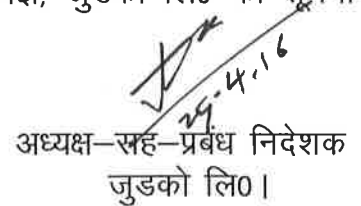 जुडको लि0
29.4.16
अध्यक्ष–सह–प्रबंध निदेशक
जुडको लि0।